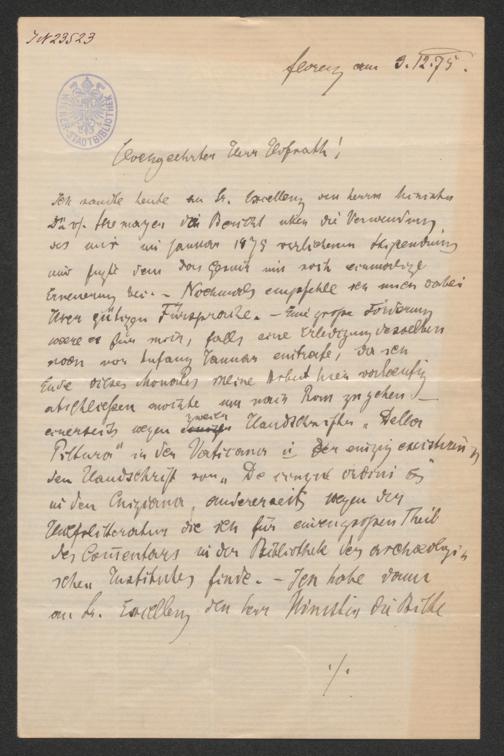 JN 23523
WIENER STADTBIBLIOTHEK
Florenz am 3.12.75.
Hochgeehrter Herr Hofrath!
Ich sandte heute an Sr. Excellenz den Herrn Minister
Dr v. Stremayer den Bericht über die Verwendung
des mir im Januar 1875 verliehenen Stipendiums
und fügte dem das Gesuch um noch einmalige
Erneuerung bei. – Nochmals empfehle ich mich dabei
Ihrer gütigen Fürsprache. – Eine große Förderung
wäre es für mich, falls eine Erledigung desselben
noch vor Anfang Januar einträfe, da ich
Ende dieses Monates meine Arbeit hier vorläufig
abschließen möchte um nach Rom zu gehen –
einerseits wegen zweier Handschriften „Della
Pittura" in der Vaticana u der einzig existiren
den Handschrift von „De cinque ordini
in der Chigiana, andererseits wegen der
Hilfsliteratur die ich für einen großen Theil
des Com̄entars in der Bibliothek des archaeologi-
schen Institutes finde. – Ich habe dann
an Sr. Excellenz den Herr Minister die Bitte
./.